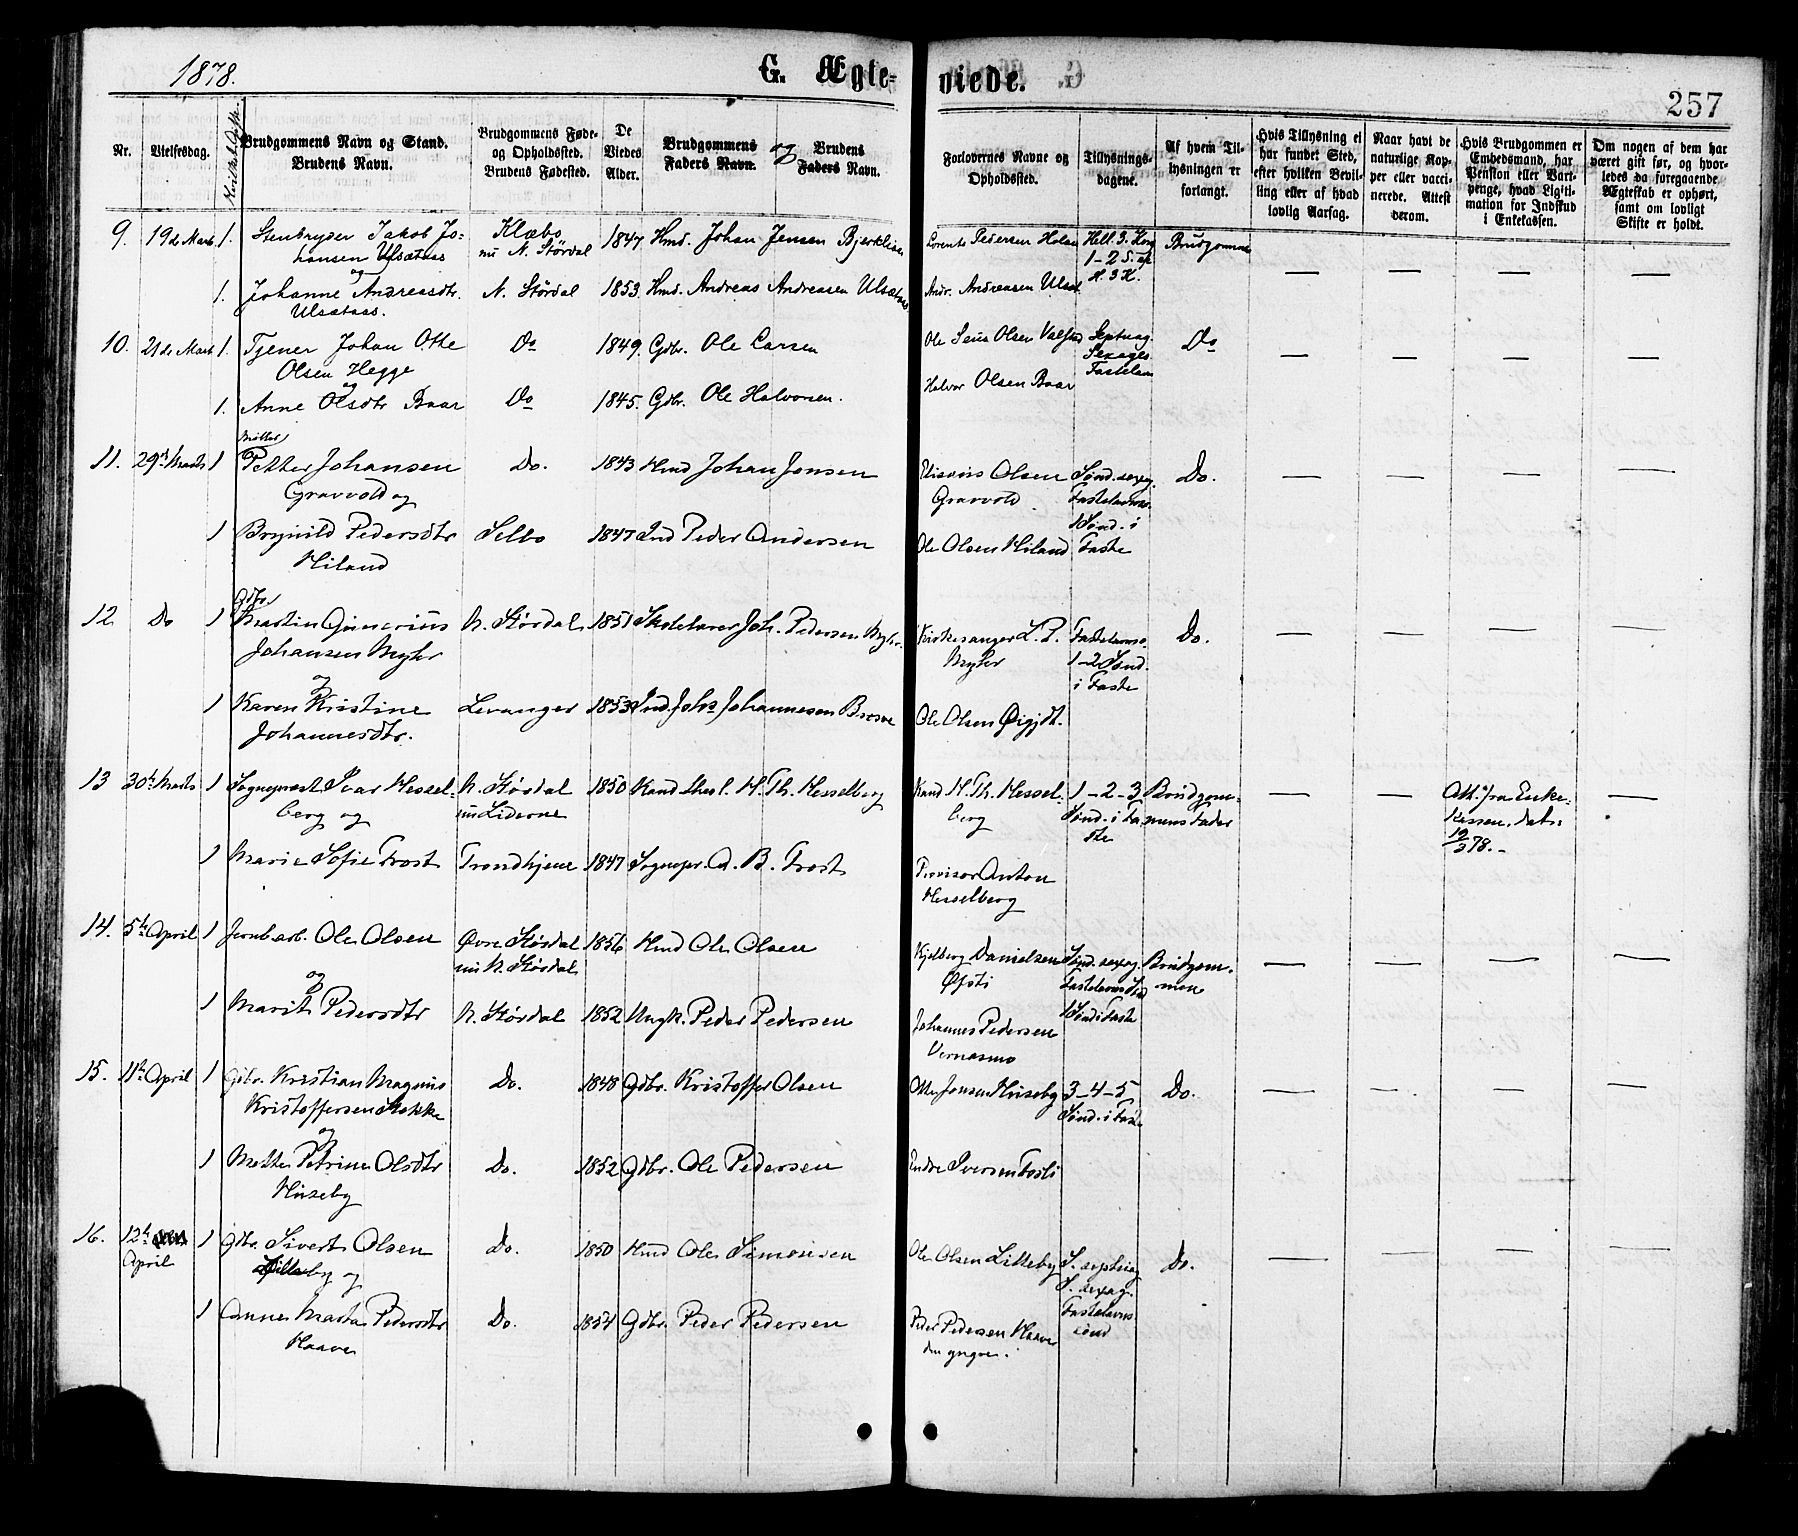 1878.
G. Ægte-
viede.
257
Nr.
Vielsesdag.
Brudgommens Navn og Stand.
Brudens Navn.
Brudgommens Føde-
og Opholdssted.
Brudens Fødested.
De
Viedes
Alder.
Brudgommens
Faders Navn.
og
Brudens
Faders Navn.
Forlovernes Navne og
Opholdssted.
Tillysnings-
dagene.
Af hvem Til-
lysningen er
forlangt.
Hvis Tillysning ei
har fundet Sted,
efter hvilken Bevil-
ling eller af hvad
lovlig Aarsag.
Naar havt de
naturlige Kop-
per eller vacci-
nerede. Attest
derom.
Hvis Brudgommen er
Embedsmand, har
Pension eller Vart-
penge, hvad Ligiti-
mation for Indskud
i Enkekassen.
Om nogen af dem har
været gift før, og hvor-
ledes da foregaaende
Ægteskab er ophørt,
samt om lovligt
Skifte er holdt.
9. 19de Marts 1. Stenbryder Jakob Jo-
hansen Ulsætaas
og
Klæbo
nu N. Stördal
1847. Hmd. Johan Jensen Bjerklien
Lorents Pedersen Holan
Hell. 3. Kong
1-2 S. ef.
H. 3 K.
Brudgommen
— — — —
1. Johanne Andreasdtr.
Ulsætaas.
N. Stördal 1853. Hmd. Andreas Andreasen Ulsætaas
Andr. Andreasen Ulsæt.
10. 21de Marts 1. Tjener Johan Otte
Olsen Hegge
og
Do 1849. Gdbr. Ole Larsen
Ole Olsen
Septuag.
Sexages.
Fastelavn
Do
— — — —
1. Anne Olsdtr Baar Do 1845. Gdbr. Ole Halvorsen.
Halvor Olsen Baar
11. 29de Marts 1 Møller
Petter Johansen
Gravvold og
Do. 1843 Hmd Johan Jensen
Olsen
Gravvold
Sønd. sexag.
Fastelavns.
1 Sønd. i
Faste
Do.
— — — —
1 Brynild Pedersdtr
Hiland
Selbo 1847 Ind Peder Andersen
Ole Olsen Hiland
12 Do 1 Gdbr.
Martin Gunerius
Johansen Myhr
og
N. Stördal 1851 Skolelærer Joh. Pedersen Myhr.
Kirkesanger L. P.
Myhr
Fastelavns.
1-2 Sønd.
i Faste
Do.
— — — —
1 Karen Kristine
Johannesdtr.
Levanger 1853 Ind. Johs Johannesen
Ole Olsen
13 30te Marts 1 Sogneprest Ivar Hessel-
berg og
N. Stördal
nu Lierne
1850 Kand. theol. H. Th. Hesselberg
Kand H. Th. Hessel-
berg
1-2-3
Sønd. i Fa-
ste
Brudgom-
mens Fader
— —
Att. fra Enke-
kassen, dat.
19/3 78.-
—
1 Marie Sofie Trost Trondhjem 1847 Sognepr. A. B. Trost
Provisor Anton
Hesselberg
14. 5te April 1 Jernbarb. Ole Olsen
og
Øvre Stördal
nu N. Stördal
1856 Hmd Ole Olsen
Kjelberg Danielsen
Øfsti
Sønd. sexag.
Fastelavns Snd
1 Sønd i Faste
Brudgom-
men
— — — —
1 Marit Pedersdtr N. Stördal 1852 Ungk. Peder Pedersen
Johannes Pedersen
Vernasmo
15. 11te April 1 Gdbr. Kristian Magnus
Kristoffersen Stokke
og
Do. 1848 Gdbr. Kristoffer Olsen
Otter Jensen Huseby
3-4-5
Sønd. i Faste
Do.
— — — —
1 Mette Petrine Olsdtr
Huseby
Do. 1852 Gdbr. Ole Pedersen
Endre Iversen
16. 12te
April 1 Gdbr. Sivert Olsen
Lilleby og
Do. 1850 Hmd Ole Simonsen
Ole Olsen Lilleby
S. septuag
S. sexag.
Fastelavns
sönd
Do.
— — — —
1 Anne Marta Pedersdtr
Haave
Do. 1854 Gdbr. Peder Pedersen
Peder Pedersen Haave
den yngre.